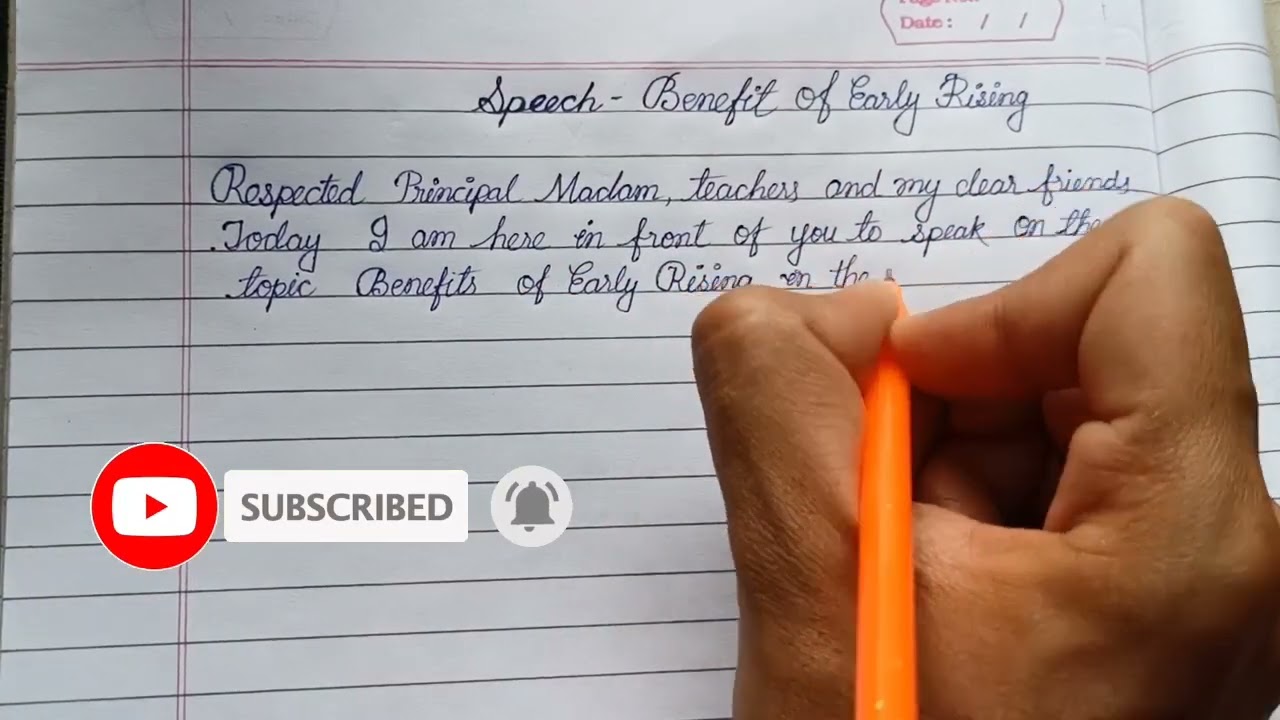 Date: / /
Speech - Benefit of Early Rising
Respected Principal Madam, teachers and my dear friends
.Today I am here in front of you to speak on the
topic Benefits of Early Rising in the
SUBSCRIBED